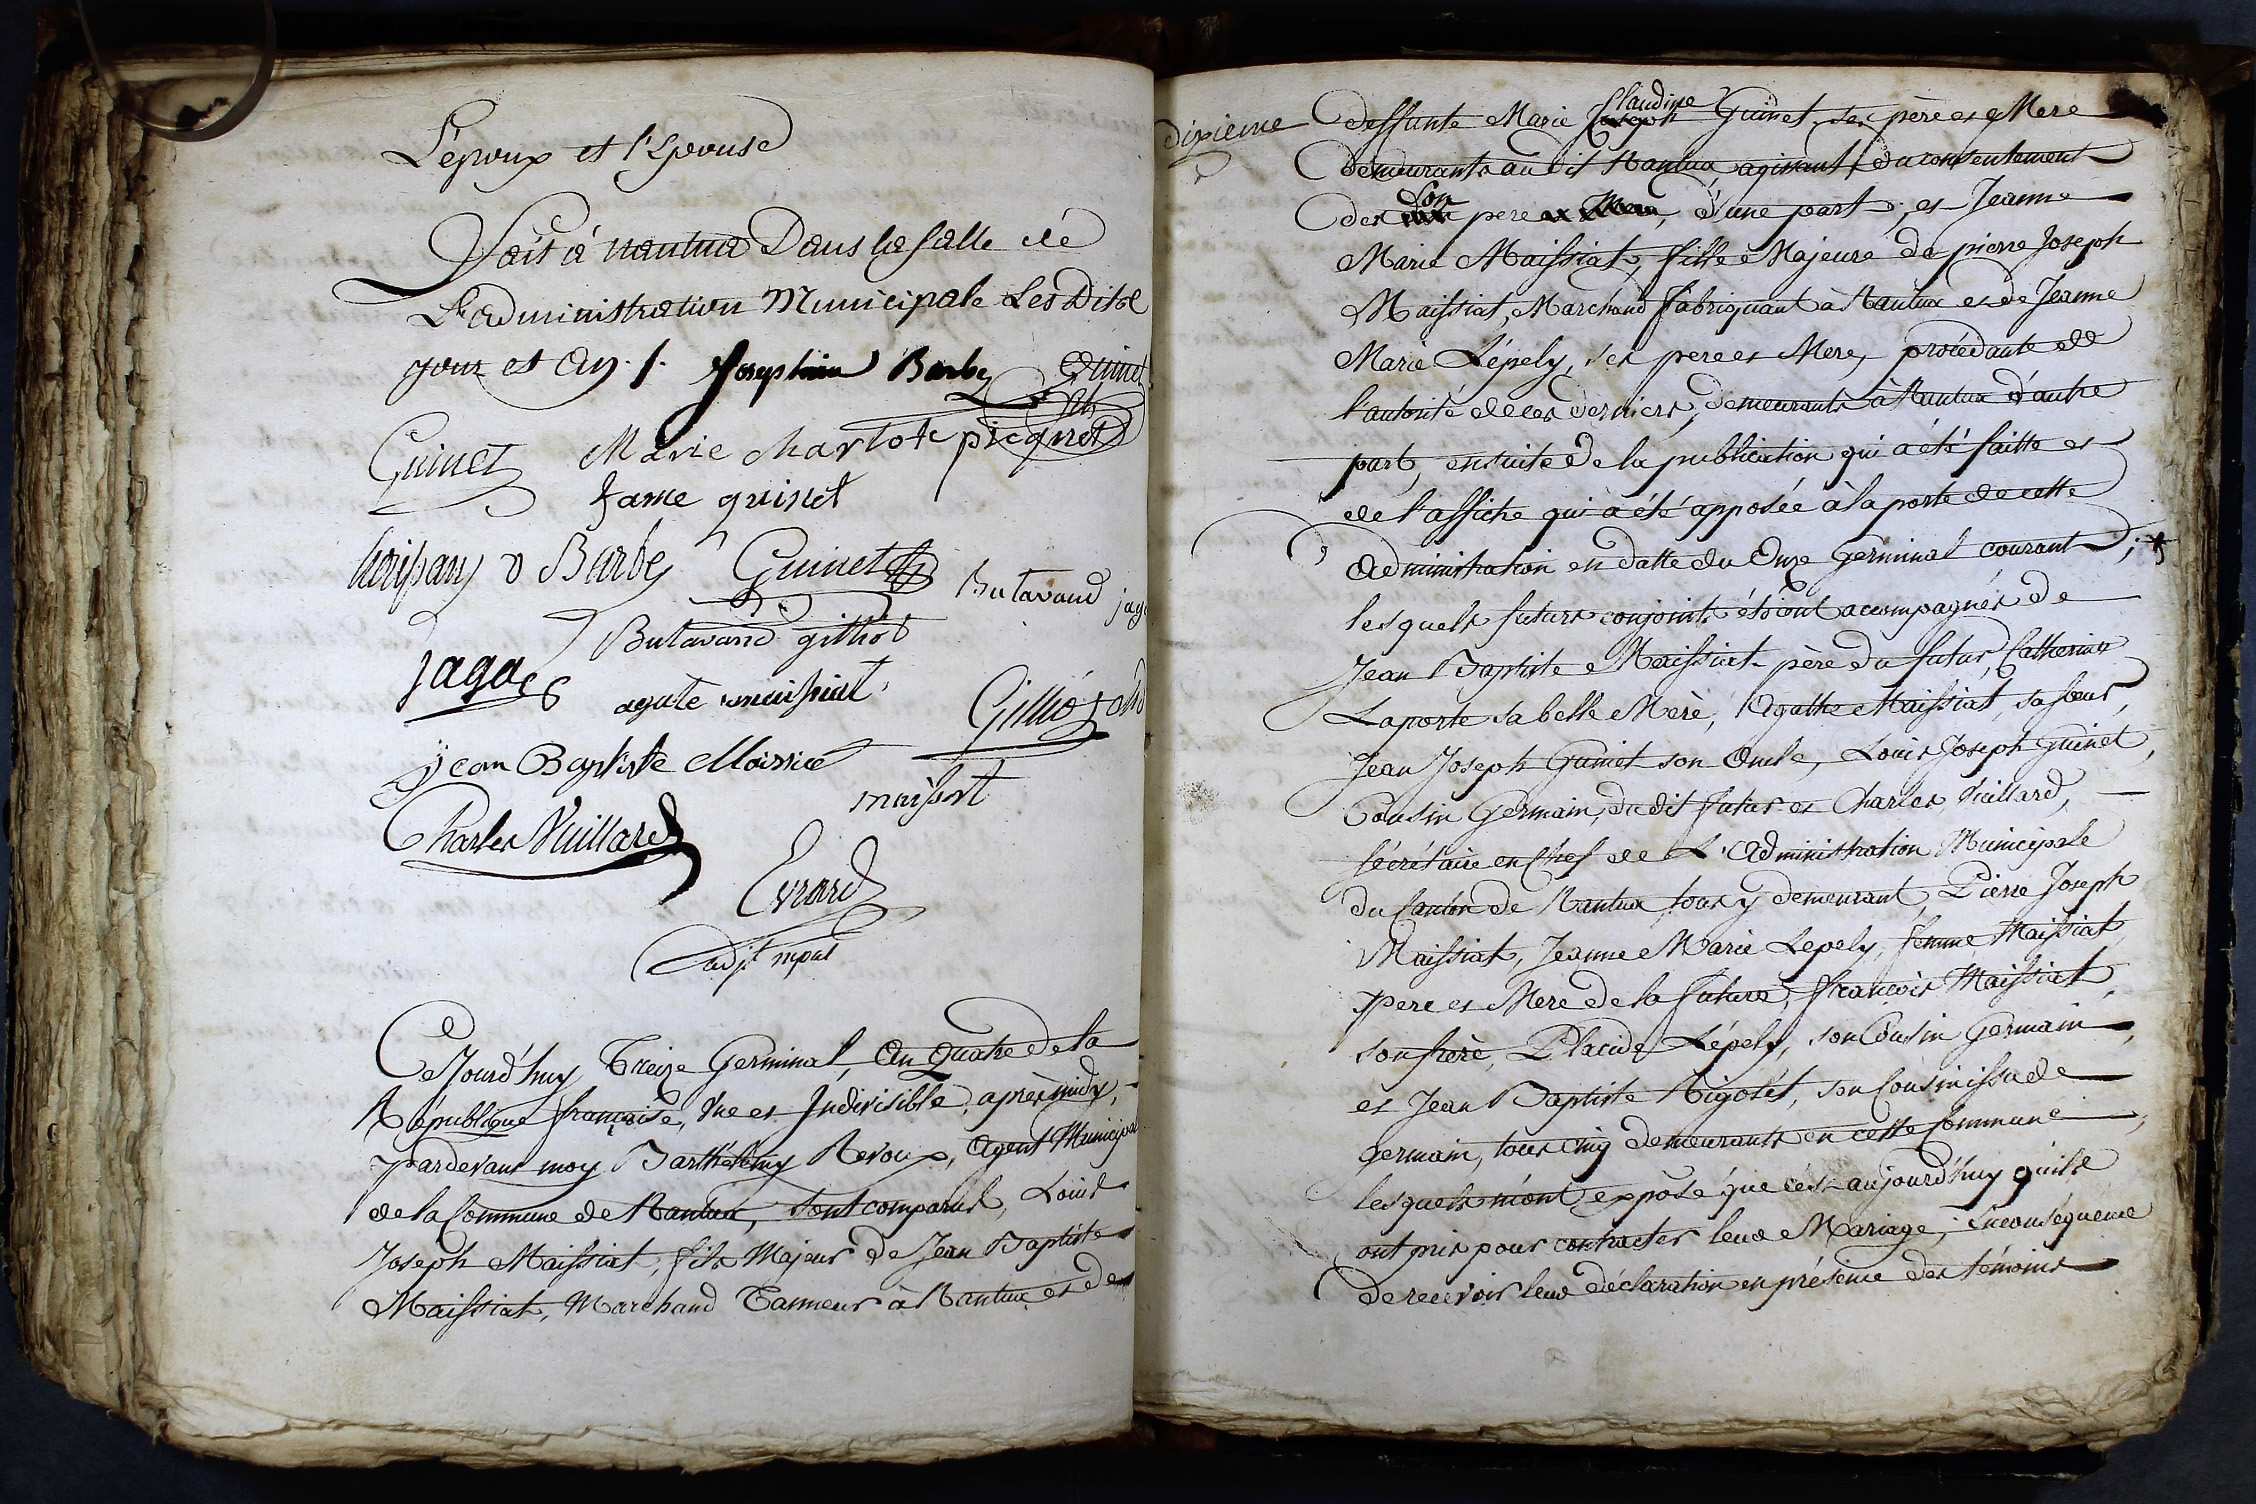 L'époux et l'Epouse
Fait à nantua Dans la salle de
L'administration Municipale Les Dits
jour et an ./. Josephine Barbe Guinet
Guinet Marie charlote picquet
fame guinet
Barbe Guinet Butavand jag
jagot Butavand gilliot
agate maissiat Gillio
jean Baptiste Maissiat
maissiat
Charles Vuillard
Evrard
adjt mpal
Cejourd'huy Treize Germinal, an quatre de la
République française, Une et Indivisible, après midy,
pardevant moy Barthélémy Revoux, Agent Municipal
de la Commune de Nantua, sont comparus, Louis
Joseph Maissiat, fils Majeur de Jean Baptiste
Maissiat, Marchand Tanneur à Nantua et de
dixieme
Claudine
deffunte Marie Joseph Guinet ses père et Mere
demeurants au dit Nantua, agissant du consentement
son
des père et Mere, d'une part, et Jeanne
Marie Maissiat, fille Majeure de pierre Joseph
Maissiat, Marchand fabriquant à Nantua et de Jeanne
Marie Lépely, ses pere et Mere, procédante de
l'autorité de ces derniers, demeurants à Nantua d'autre
part, ensuite de la publication qui a été faitte et
de l'affiche qui a été apposée à la porte de cette
Administration en datte du Onze Germinal courant;
lesquels futurs conjoints étoient accompagnés de
Jean Baptiste Maissiat père du futur, Catherine
Laporte sa belle Mere, Agathe Maissiat, sa sœur,
Jean Joseph Guinet son Oncle, Louis Joseph Guinet,
Cousin Germain, du dit futur et Charles Vuillard,
sécrétaire en Chef de L'Administration Municipale
du Canton de Nantua tous y demeurant, Pierre Joseph
Maissiat, Jeanne Marie Lepely, femme Maissiat,
pere et Mere de la future, françois Maissiat,
son frere, Placide Lépely, son Cousin Germain,
et Jean Baptiste Rigolet, son Cousin issu de
germain, tous cinq demeurants en cette Commune,
lesquels m'ont exposé que c'est aujourd'huy qu'ils
ont pris pour contracter leur Mariage; En conséquence
de recevoir leur déclaration en présence des témoins